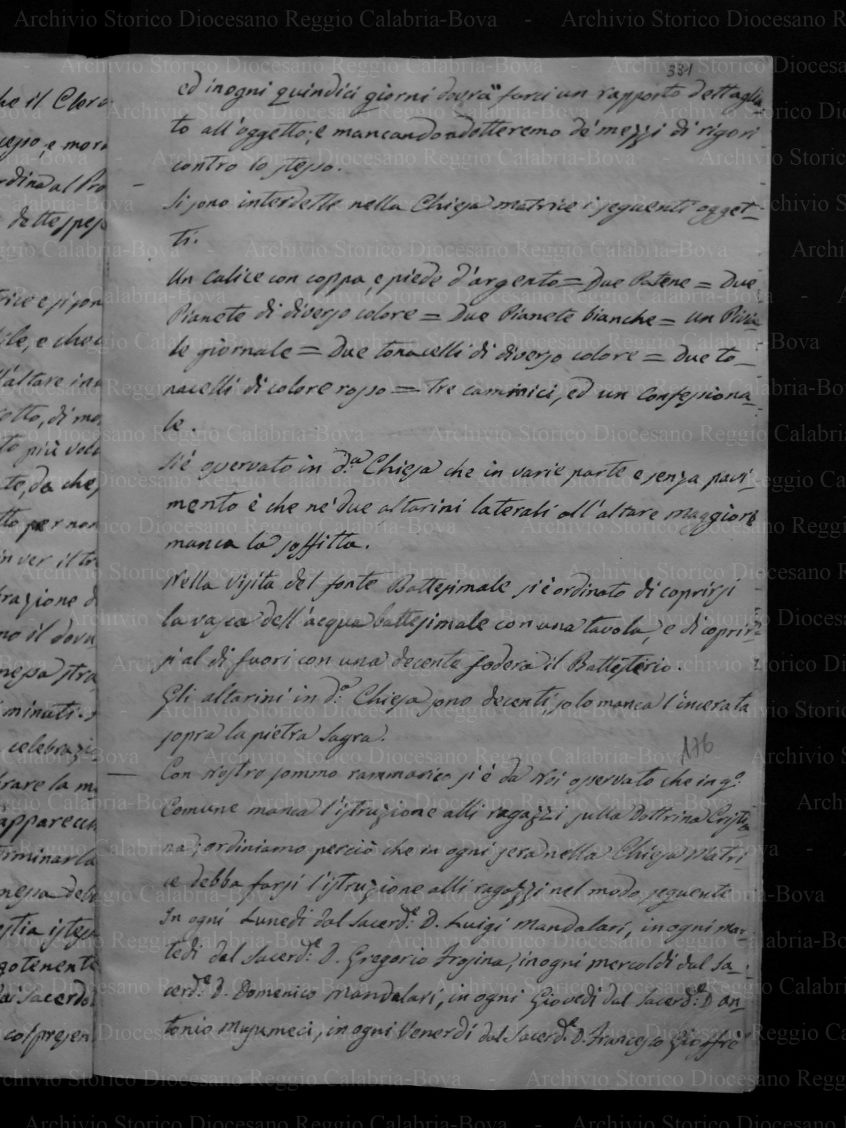 331
ed in ogni quindici giorni dovrà farci un rapporto dettaglia-
to all'oggetto; e mancando adotteremo de' mezzi di rigori
contro lo stesso.
Si sono interdette nella Chiesa matrice i seguenti ogget-
ti.
Un Calice con coppa, e piede d'argento = Due Patene = Due
Pianete di diverso colore = Due Pianete bianche = un Pivia
le giornale = Due tonacelli di diverso colore = Due to-
nacelli di colore rosso = tre cammici, ed un Confessiona-
le.
Si è osservato in d.ª Chiesa che in varie parte e senza pavi-
mento è che ne' due altarini laterali all'altare maggiore
manca la soffitta.
Nella visita del fonte Battesimale si è ordinato di coprirsi
la vasca dell'acqua battesimale con una tavola, e di coprir-
si al di fuori con una decente fodera il Battisterio.
Gli altarini in d.ª Chiesa sono decenti, solo manca l'incerata
sopra la pietra Sagra.
176
Con Nostro sommo rammarico si è da Noi osservato che in q.º
Comune manca l'istruzione alli ragazzi sulla Dottrina Cristia
na; ordiniamo perciò che in ogni sera nella Chiesa Matri
ce debba farsi l'istruzione alli ragazzi nel modo seguente
In ogni Lunedì dal Sacerd.e D. Luigi Mandalari, in ogni Mar-
tedì dal Sacerd.e D. Gregorio Trojina, in ogni mercoldì dal Sa-
cerd.e D. Domenico Mandalari, in ogni Giovedì dal Sacerd.e D. An-
tonio Musumeci, in ogni Venerdì dal Sacerd.e D. Francesco Gioffrè
Archivio Storico Diocesano Reggio Calabria-Bova